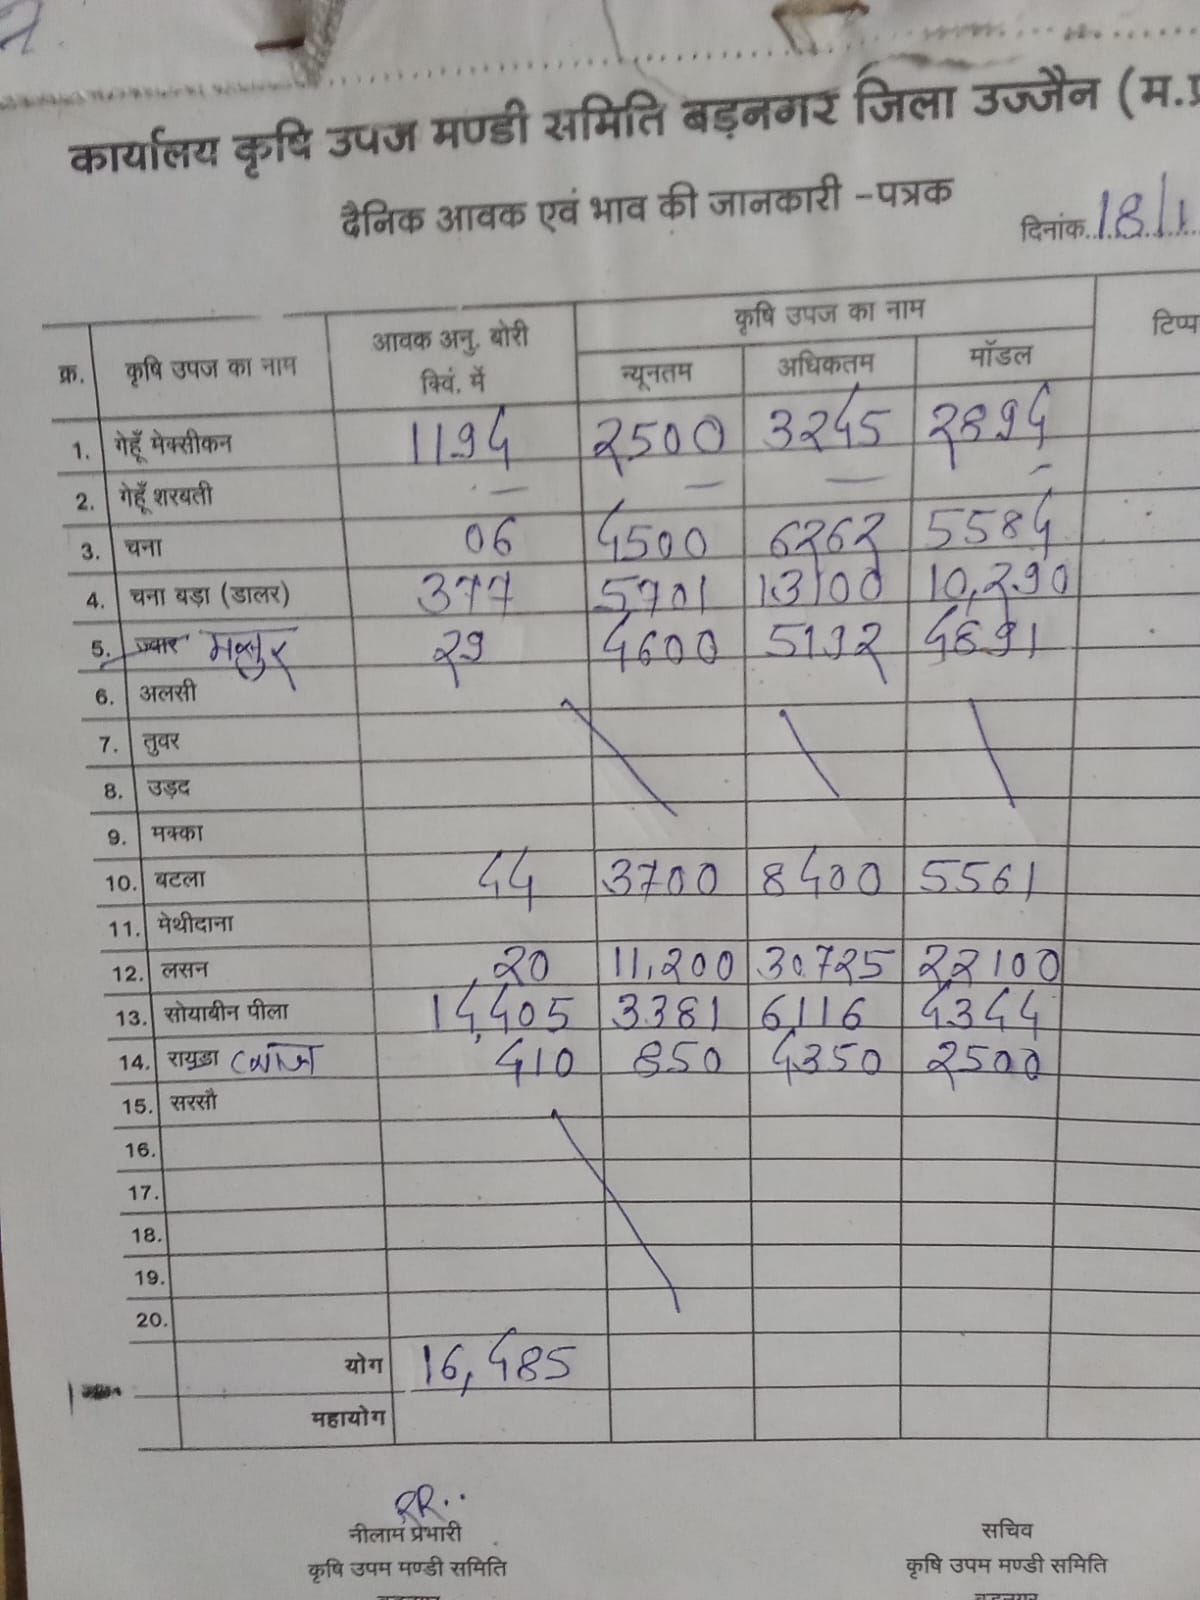 कार्यालय कृषि उपज मण्डी समिति बड़नगर जिला उज्जैन (म.प्र
दैनिक आवक एवं भाव की जानकारी -पत्रक
दिनांक..18/1
क्र. कृषि उपज का नाम आवक अनु. बोरी क्विं. में कृषि उपज का नाम टिप्प
न्यूनतम अधिकतम मॉडल
1. गेहूँ मेक्सीकन 1194 2500 3245 2894
2. गेहूँ शरबती - - - -
3. चना 06 4500 6262 5584
4. चना बड़ा (डालर) 377 5701 13100 10,290
5. ज्वार मसुर 29 4600 5192 4891
6. अलसी
7. तुवर
8. उड़द
9. मक्का
10. बटला 44 3700 8400 5561
11. मेथीदाना
12. लसन 20 11,200 30725 22100
13. सोयाबीन पीला 14,405 3381 6116 4344
14. रायड़ा प्याज 410 850 4350 2500
15. सरसौ
16.
17.
18.
19.
20.
योग 16,485
महायोग
RR..
नीलाम प्रभारी सचिव
कृषि उपम मण्डी समिति कृषि उपम मण्डी समिति
बड़नगर बड़नगर